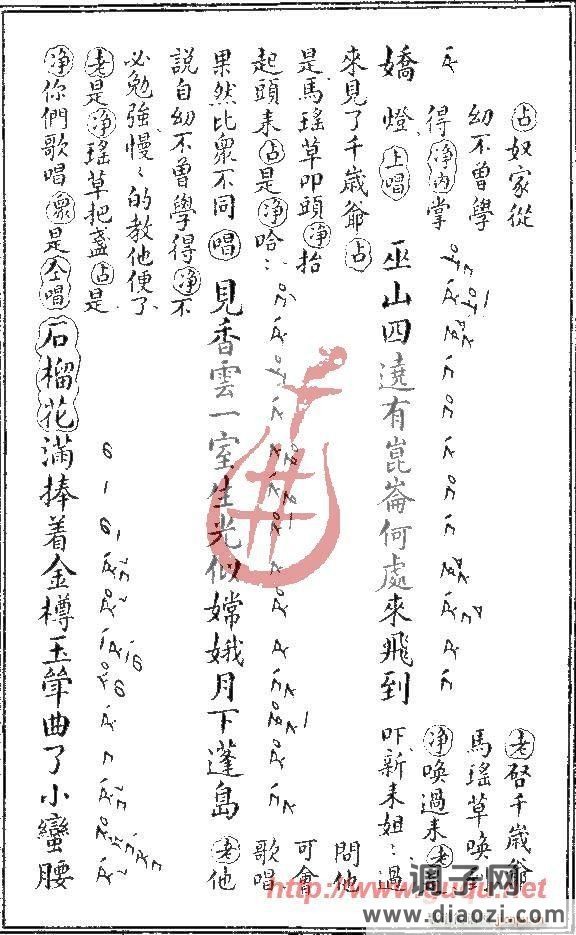 嬌
占奴家從
幼不曽學
得净内掌
燈上唱
巫山四遶有崑崙何處來飛到
老啓千歲爺
馬瑤草喚到
净喚過来老
吓新来姐〻過
來見了千歲爺占
是馬瑤草叩頭净抬
起頭来占是净哈〻
果然比衆不同唱
見香雲一室生光似嫦娥月下蓬島
問他
可會
歌唱
老他
說自幼不曽學得净不
必勉強慢〻的教他便了
老是净瑤草把盞占是
净你們歌唱衆是仝唱
石榴花滿捧着金樽玉斝曲了小蠻腰
http://www.guqu.net
调子网
www.diaozi.com